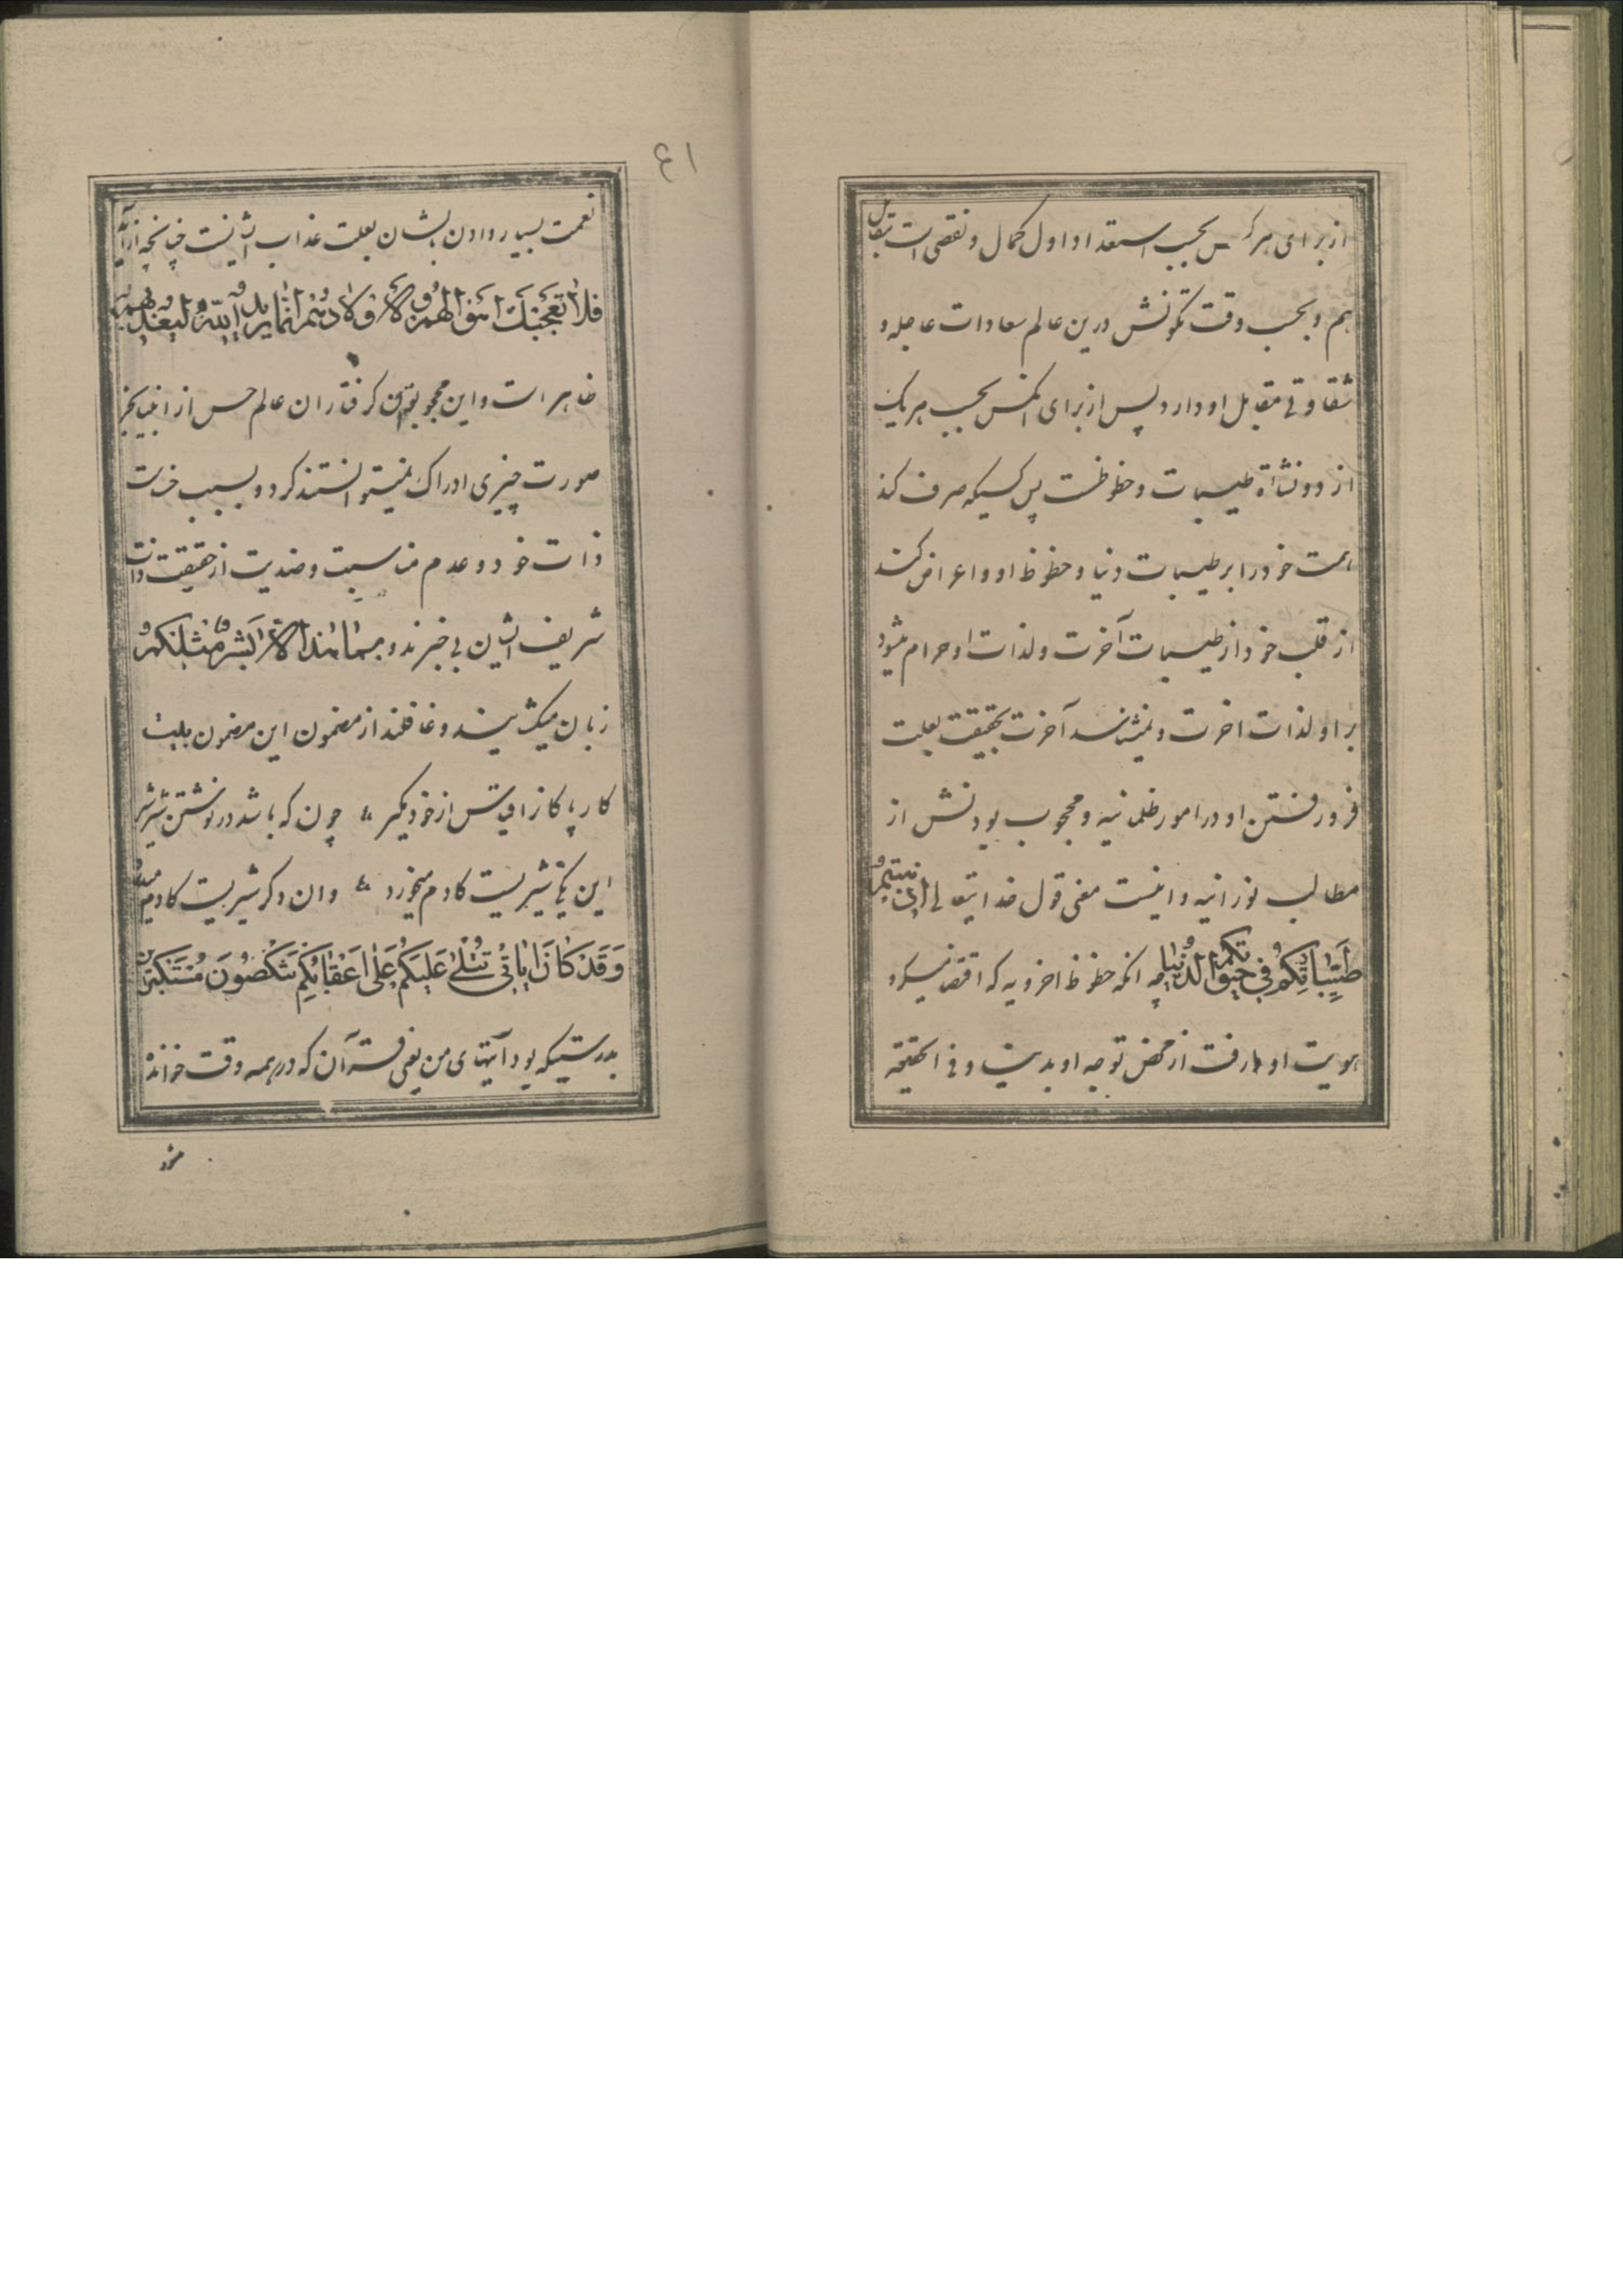 از برای هرکس بحسب استعداد اول کمال و نقصی است مقابل
هم و بحسب وقت تکونش درین عالم سعادات عاجله و
شقاوتی مقابل او دارد پس از برای انکس بحسب هریک
از دو نشأة طیبات و حظوظست پس کسیکه صرف کند
همت خود را بر طیبات دنیا و حظوظ او و اعراض کند
از قلب خود از طیبات آخرت و لذات او حرام میشود
بر او لذات اخرت و نمیشناسد آخرت بحقیقت بعلت
فرو رفتن او در امور ظلمانیه و محجوب بودنش از
مطالب نورانیه و اینست معنی قول خدایتعالی اذهبتم
طَیِّبَاتِکُمْ فِی حَیٰوتِکُمُ الدُّنْیَا چه انکه حظوظ اخرویه که اقتضا میکرد
هویت او را رفت از محض توجه او بدنیا و فی الحقیقه
۶۱
نعمت بسیار دادن بایشان بعلت عذاب ایشانست چنانچه از آیه
فلا تعجبک اموالهم و لا اولادهم انما یرید الله لیعذبهم
ظاهر است و این محجوبان و گرفتاران عالم حس از انبیا بجز
صورت چیزی ادراک نمیتوانستند کرد و بسبب خست
ذات خود و عدم مناسبت و ضدیت از حقیقت ذات
شریف ایشان بی خبرند و بما هذا الا بشر مثلکم
زبان میکشایند و غافلند از مضمون این مضمون بلیت
کار پاکانرا قیاس از خود مگیر چون که باشد در نوشتن شیر شیر
این یکی شیریست کادم میخورد وان دگر شیریست کادم
وَقَدْ کَانَ اٰیَاتِی تُتْلٰی عَلَیْکُمْ عَلٰی اَعْقَابِکُمْ تَنْکِصُونَ مُسْتَکْبِرِینَ
بدرستیکه بود آیتهای من یعنی قرآن که در همه وقت خوانده